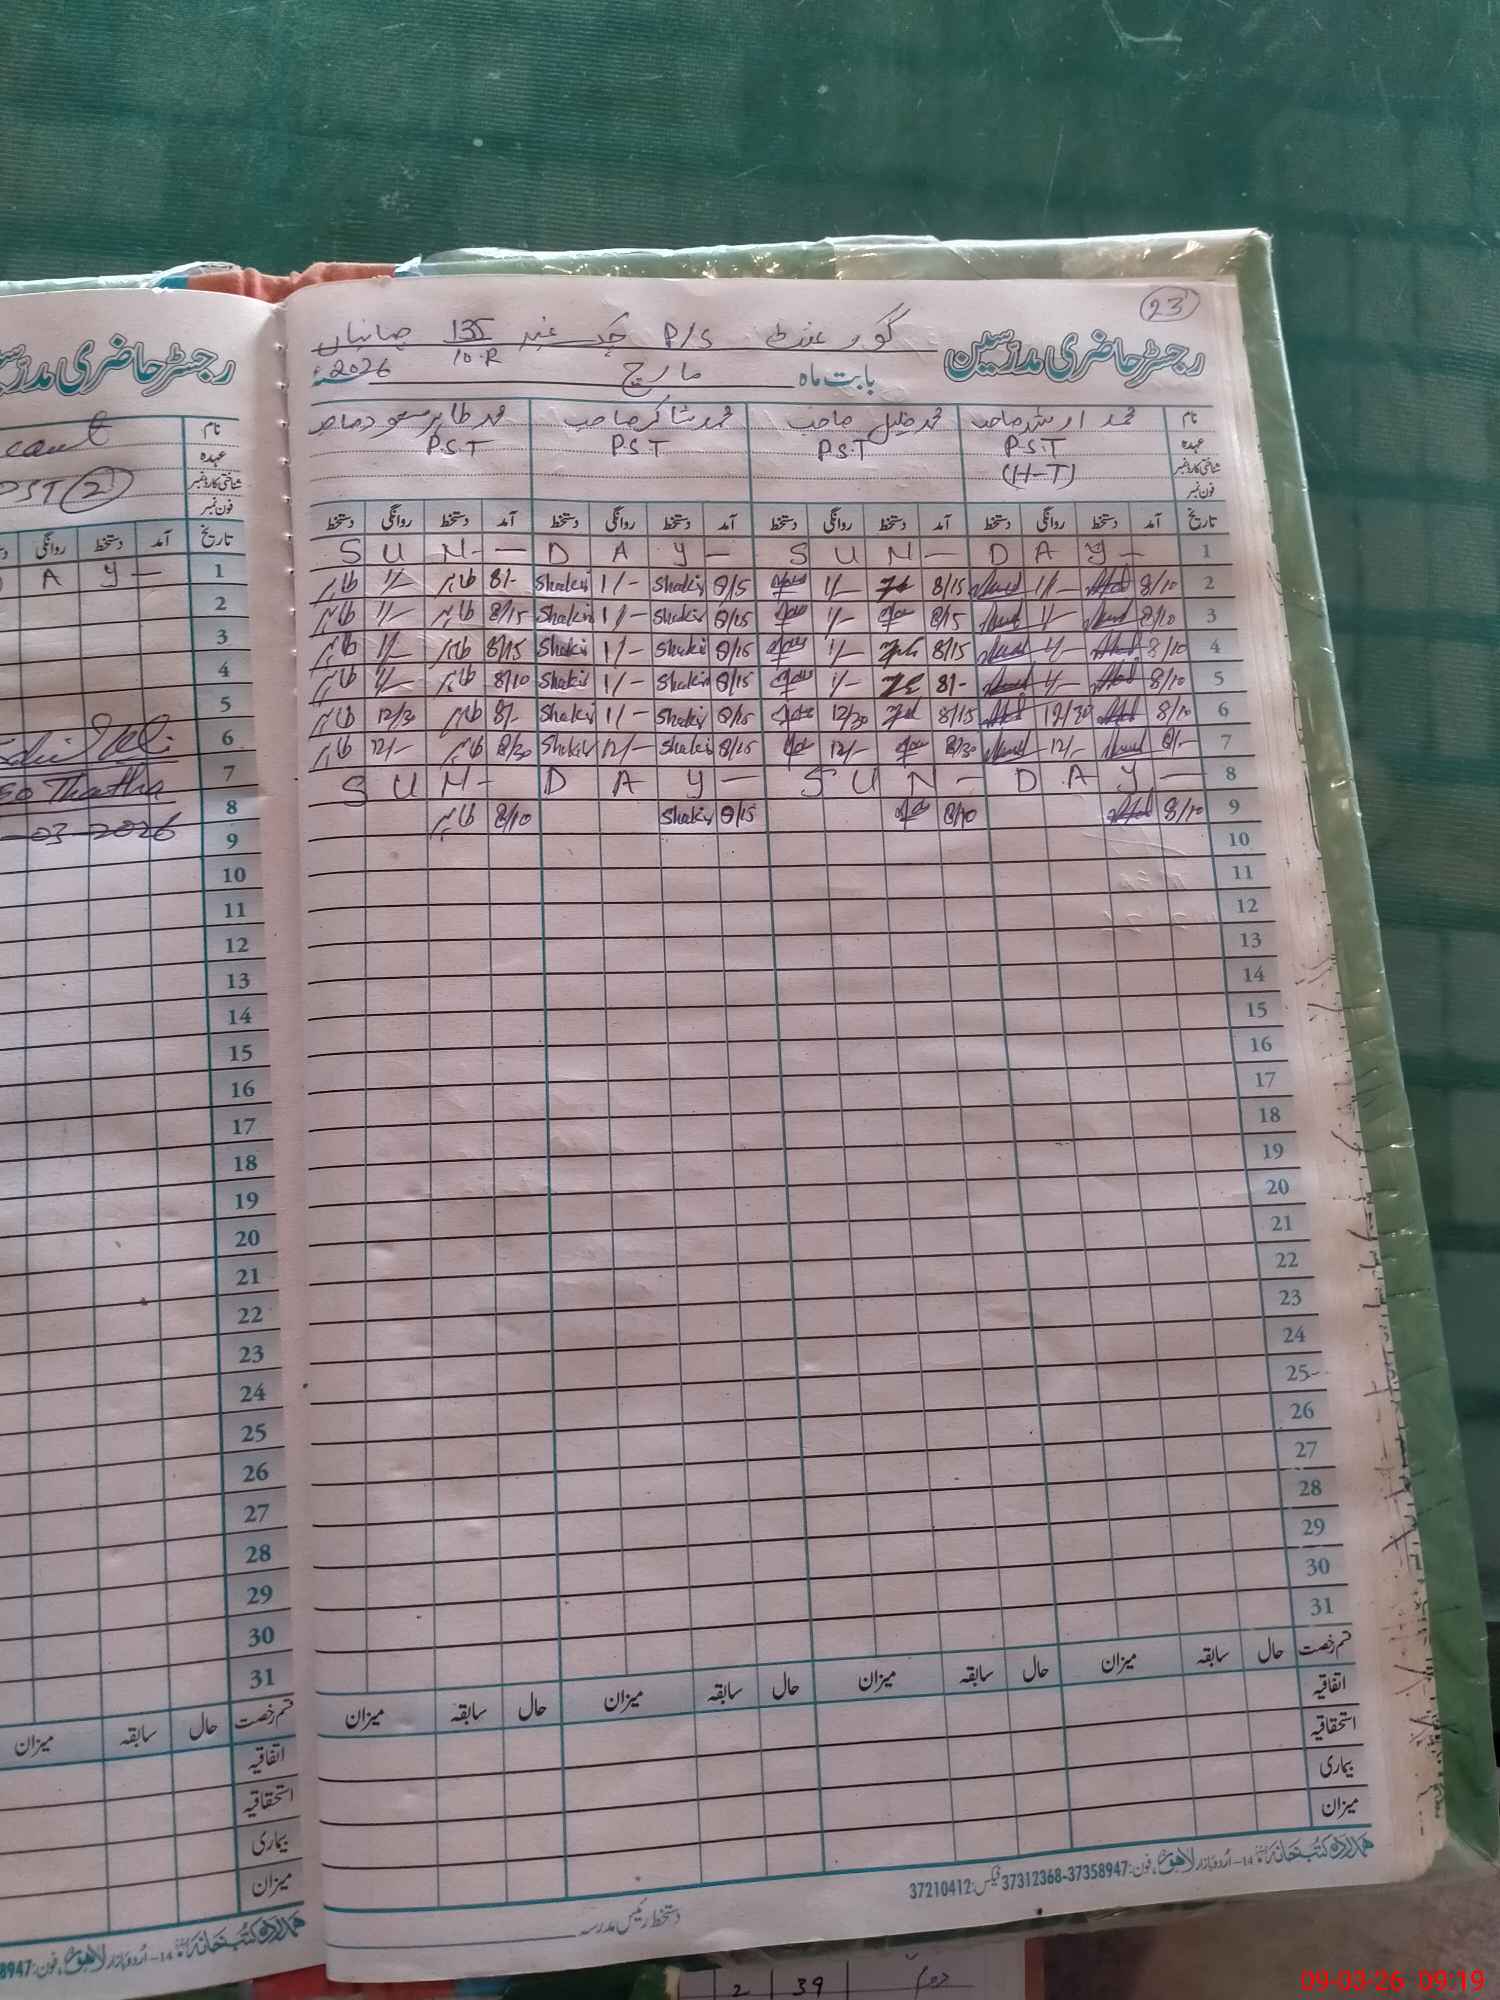 23
رجسٹر حاضری مدرسین گورنمنٹ P/S چک نمبر 135/10-R جہانیاں
بابت ماہ مارچ 2026ء
نام محمد ارشد صاحب محمد خلیل صاحب محمد شاکر صاحب محمد طاہر مسعود صاحب
عہدہ P.S.T P.S.T P.S.T P.S.T
شناختی کارڈ نمبر (H-T)
فون نمبر
تاریخ آمد دستخط روانگی دستخط آمد دستخط روانگی دستخط آمد دستخط روانگی دستخط آمد دستخط روانگی دستخط
S U N - - D A Y - S U N - D A Y - 1
طاہر 1/- طاہر 8/- Shakir 1/- Shakir 8/15 1/- 8/15 1/- 8/10 2
طاہر 1/- طاہر 8/15 Shakir 1/- Shakir 8/15 1/- 8/15 1/- 8/10 3
طاہر 1/- طاہر 8/15 Shakir 1/- Shakir 8/15 1/- 8/15 1/- 8/10 4
طاہر 1/- طاہر 8/10 Shakir 1/- Shakir 8/15 1/- 8/- 1/- 8/10 5
طاہر 12/30 طاہر 8/- Shakir 1/- Shakir 8/15 12/30 8/15 12/30 8/10 6
طاہر 12/- طاہر 8/30 Shakir 12/- Shakir 8/15 12/- 8/30 12/- 8/- 7
S U N - D A Y - S U N - D A Y - 8
طاہر 8/10 Shakir 8/15 8/10 8/10 9
10
11
12
13
14
15
16
17
18
19
20
21
22
23
24
25
26
27
28
29
30
31
قسم رخصت حال سابقہ میزان حال سابقہ میزان حال سابقہ میزان حال سابقہ میزان
اتفاقیہ
استحقاقیہ
بیماری
میزان
ہمدرد کتب خانہ 14-اردو بازار لاہور، فون: 37358947-37312368 فیکس: 37210412
دستخط رئیس مدرسہ
رجسٹر حاضری مدرسین
نام
عہدہ PST (2)
شناختی کارڈ نمبر
فون نمبر
تاریخ آمد دستخط روانگی
A Y - 1
2
3
4
5
6
7 Thatha
8 -03-2026
9
10
11
12
13
14
15
16
17
18
19
20
21
22
23
24
25
26
27
28
29
30
31
قسم رخصت حال سابقہ میزان
اتفاقیہ
استحقاقیہ
بیماری
میزان
ہمدرد کتب خانہ 14-اردو بازار لاہور، فون: 8947
2 39
09-03-26 09:19